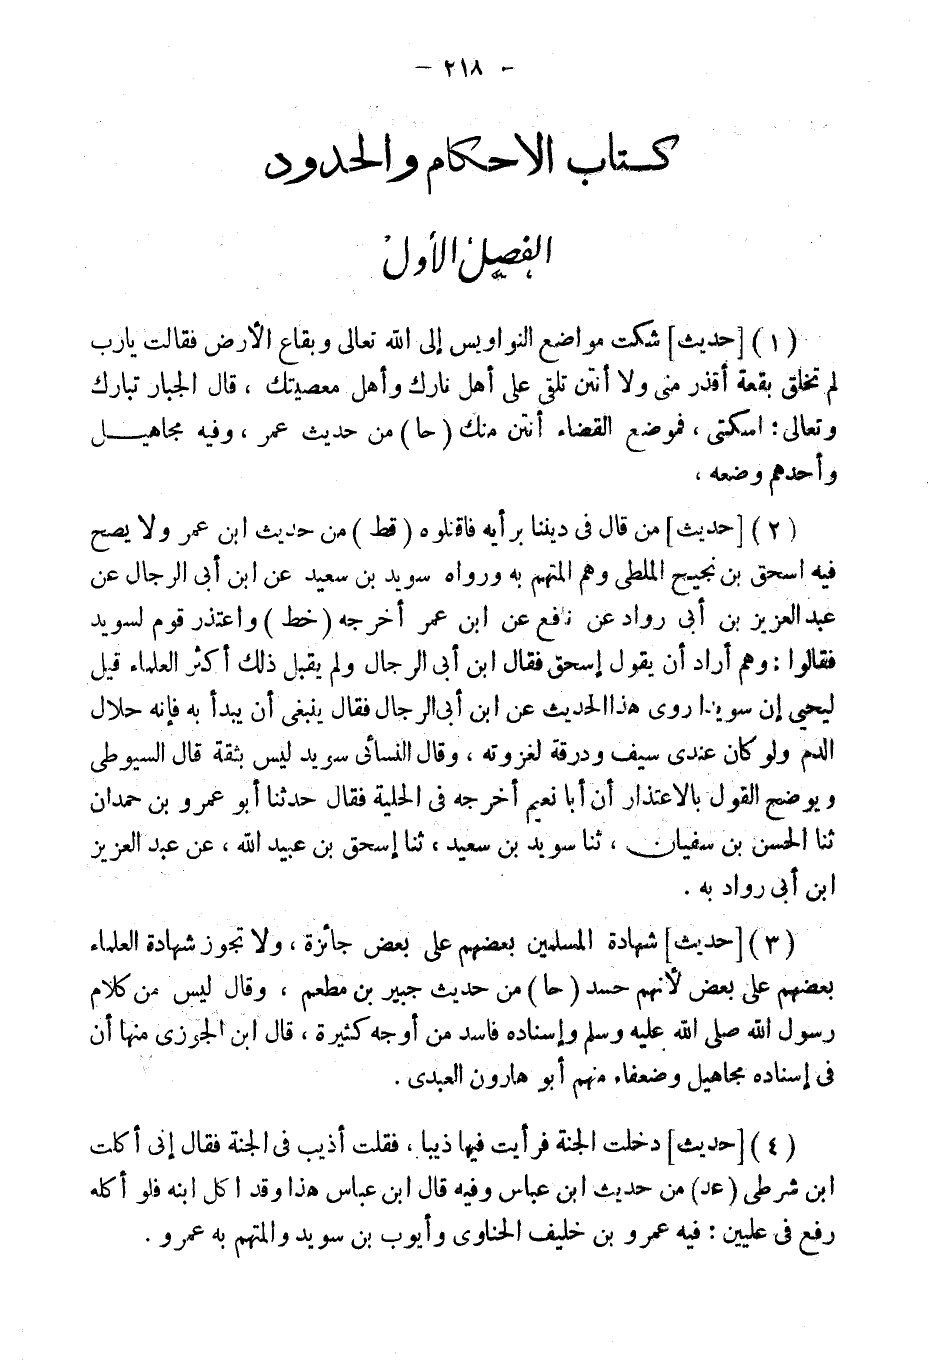 - ٢١٨ -
كتاب الاحكام والحدود
الفصل الأول
(١) [حديث] شكت مواضع النواويس إلى الله تعالى وبقاع الأرض فقالت يارب
لم تخلق بقعة أقذر منى ولا أنتن تلقى على أهل نارك وأهل معصيتك ، قال الجبار تبارك
وتعالى : اسكتى ، فموضع القضاء أنتن منك (حا) من حديث عمر ، وفيه مجاهيل
وأحدهم وضعه ،
(٢) [حديث] من قال فى ديننا برأيه فاقتلوه (قط) من حديث ابن عمر ولا يصح
فيه اسحق بن نجيح الملطى وهم المتهم به ورواه سويد بن سعيد عن ابن أبى الرجال عن
عبد العزيز بن أبى رواد عن نافع عن ابن عمر أخرجه (خط) واعتذر قوم لسويد
فقالوا : وهم أراد أن يقول إسحق فقال ابن أبى الرجال ولم يقبل ذلك أكثر العلماء قيل
ليحيى إن سويدا روى هذا الحديث عن ابن أبى الرجال فقال ينبغى أن يبدأ به فإنه حلال
الدم ولو كان عندى سيف ودرقة لغزوته ، وقال النسائى سويد ليس بثقة قال السيوطى
ويوضح القول بالاعتذار أن أبا نعيم أخرجه فى الحلية فقال حدثنا أبو عمرو بن حمدان
ثنا الحسن بن سفيان ، ثنا سويد بن سعيد ، ثنا إسحق بن عبيد الله ، عن عبد العزيز
ابن أبى رواد به .
(٣) [حديث] شهادة المسلمين بعضهم على بعض جائزة ، ولا تجوز شهادة العلماء
بعضهم على بعض لأنهم حسد (حا) من حديث جبير بن مطعم ، وقال ليس من كلام
رسول الله صلى الله عليه وسلم وإسناده فاسد من أوجه كثيرة ، قال ابن الجوزى منها أن
فى إسناده مجاهيل وضعفاء منهم أبو هارون العبدى .
(٤) [حديث] دخلت الجنة فرأيت فيها ذيبا ، فقلت أذيب فى الجنة فقال إنى أكلت
ابن شرطى (عد) من حديث ابن عباس وفيه قال ابن عباس هذا وقد اكل ابنه فلو أكله
رفع فى عليين : فيه عمرو بن خليف الحناوى وأيوب بن سويد والمتهم به عمرو .